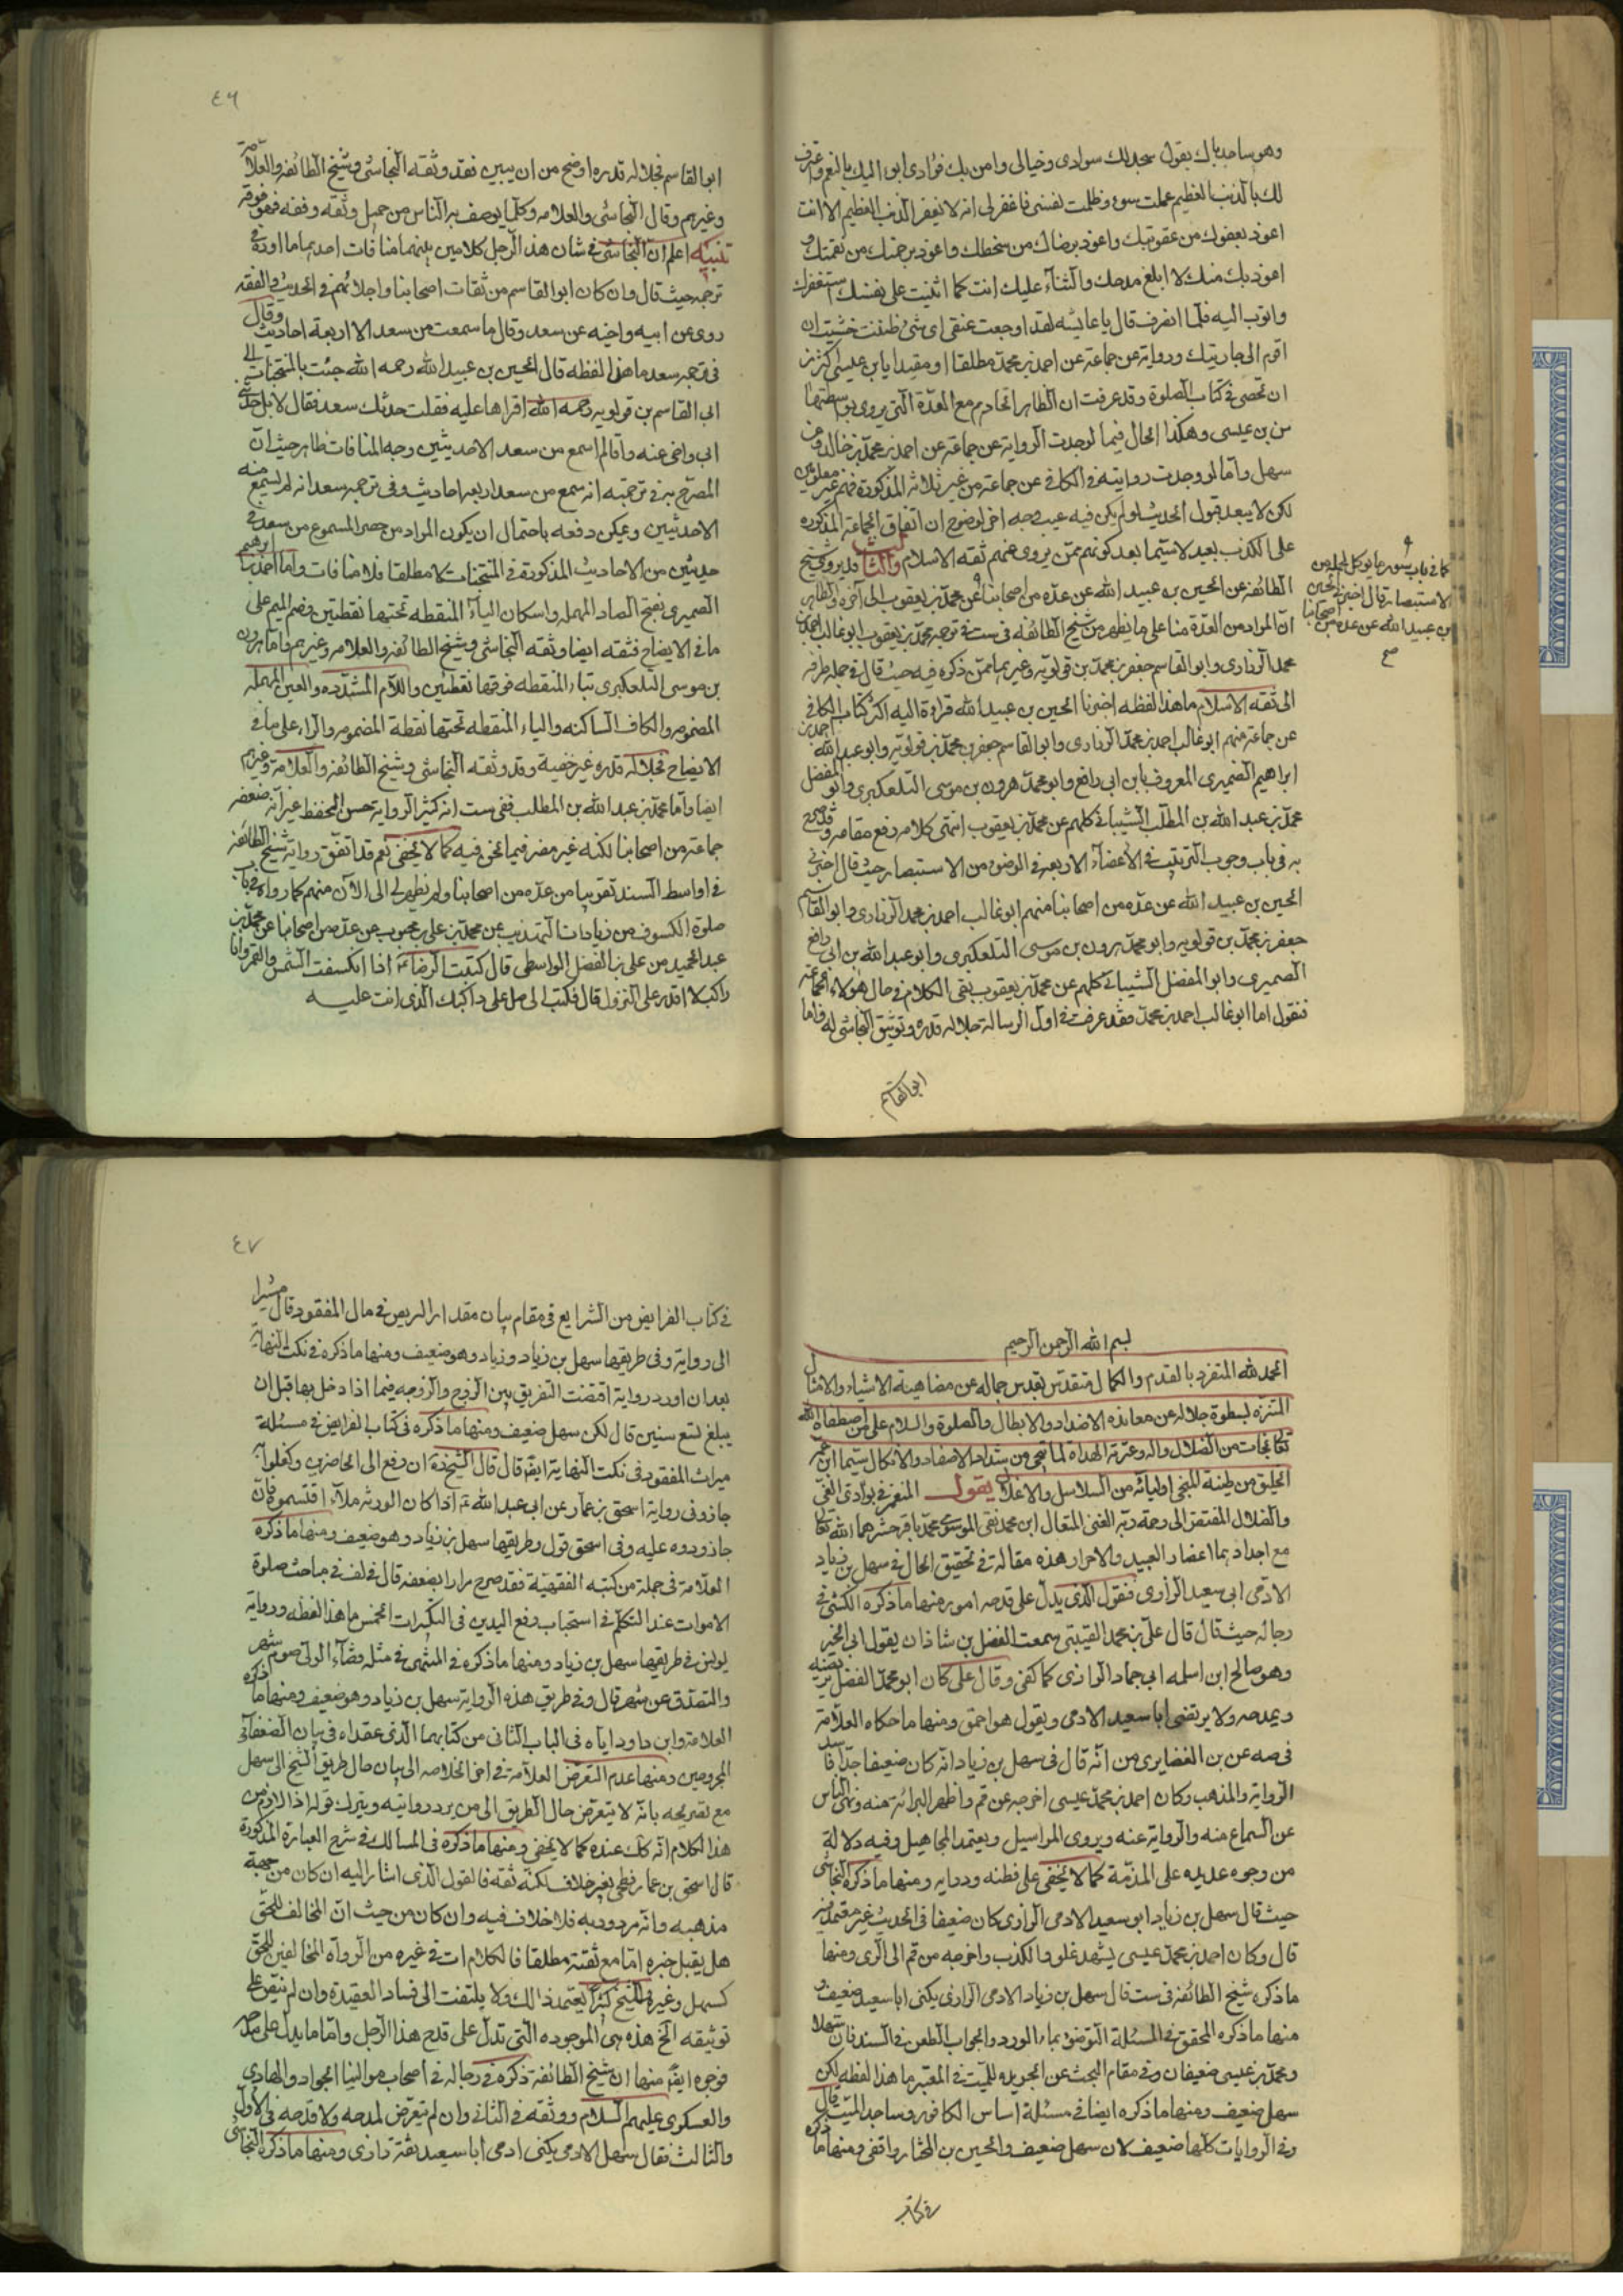 وهو ساجد باك يقول سجد لك سوادى وخيالى وامن بك فؤادى ابوء اليك بالنعم واعترف
لك بالذنب العظيم عملت سوء وظلمت نفسى فاغفر لى انه لا يغفر الذنب العظيم الا انت
اعوذ بعفوك من عقوبتك واعوذ برضاك من سخطك واعوذ برحمتك من نقمتك و
اعوذ بك منك لا ابلغ مدحك والثناء عليك انت كما اثنيت على نفسك استغفرك
واتوب اليه فلما انصرف قال يا عايشه لقد اوجعت عنقى اى شئ ظننت خشيت ان
اقوم الى جاريتك وروايته عن جماعة عن احمد بن محمد مطلقا او مقيدا بابن عيسى اكثر من
ان تحصى فى كتاب الصلوة وقد عرفت ان الظاهر اتحادهم مع العدة التى يروى بواسطتها
عن بن عيسى وهكذا الحال فيما لو وجدت الرواية عن جماعة عن احمد بن محمد بن خالد وعن
سهل واما لو وجدت روايته فى الكافى عن جماعة من غير ثلاثة المذكورة فهم غير معلومين
لكن لا يبعد قبول الحديث لو لم يكن فيه عيب من وجه اخر لوضوح ان اتفاق الجماعة المذكوره
على الكذب بعيد لا سيما بعد كونهم ممن يروى عنهم ثقه الاسلام والثالث قد يروى شيخ
الطائفه عن الحسين بن عبيد الله عن عده من اصحابنا عن محمد بن يعقوب الى آخره والظاهر
ان المراد من العدة هنا على ما يظهر من شيخ الطائفه فى ست فى ترجمه محمد بن يعقوب ابو غالب احمد بن
محمد الزرارى وابو القاسم جعفر بن محمد بن قولويه وغيرهما ممن ذكره فيه حيث قال فى جمله طرقه
الى ثقه الاسلام ما هذا لفظه اخبرنا الحسين بن عبيد الله قراءة اليه اكثر كتاب الكافى
عن جماعة منهم ابو غالب احمد بن محمد الزرارى وابو القاسم جعفر بن محمد بن قولويه وابو عبد الله احمد بن
ابراهيم الصيمرى المعروف بابن ابى رافع وابو محمد هرون بن موسى التلعكبرى وابو المفضل
محمد بن عبد الله بن المطلب الشيبانى كلهم عن محمد بن يعقوب انتهى كلامه رفع مقامه وقد صرح
به فى باب وجوب الترتيب فى الاعضاء الاربعه فى الوضوء من الاستبصار حيث قال اخبرنى
الحسين بن عبيد الله عن عده من اصحابنا منهم ابو غالب احمد بن محمد الزرارى وابو القاسم
جعفر بن محمد بن قولويه وابو محمد هرون بن موسى التلعكبرى وابو عبد الله بن ابى رافع
الصيمرى وابو المفضل الشيبانى كلهم عن محمد بن يعقوب بقى الكلام فى حال هؤلاء الجماعة
فنقول اما ابو غالب احمد بن محمد فقد عرفت فى اول الرسالة جلاله قدره وتوثيق النجاشى له واما
ابو القاسم
كما فى باب سور ما يؤكل لحمه من
الاستبصار قال اخبرنى الحسين
بن عبيد الله عن عده من اصحابنا
صح
٤٦
ابو القاسم فجلاله قدره اوضح من ان يبين فقد وثقه النجاشى وشيخ الطائفه والعلامة
وغيرهم وقال النجاشى والعلامه وكلما يوصف به الناس من جميل وثقه وفقه فهو فوقه
تنبيه اعلم ان النجاشى فى شان هذا الرجل كلامين بينهما منافات احدهما ما اورده فى
ترجمه حيث قال وان كان ابو القاسم من ثقات اصحابنا واجلائهم فى الحديث والفقه
روى عن ابيه واخيه عن سعد وقال ما سمعت من سعد الا اربعة احاديث وقال
فى ترجمه سعد ما هذا لفظه قال الحسين بن عبيد الله رحمه الله جئت بالمنتخبات الى
ابى القاسم بن قولويه رحمه الله اقراها عليه فقلت حدثك سعد فقال لا بل حدثنى
ابى واخى عنه وانا لم اسمع من سعد الا حديثين وجه المنافات ظاهر حيث ان
المصرح به فى ترجمته انه سمع من سعد اربعه احاديث وفى ترجمه سعد انه لم يسمع منه
الا حديثين ويمكن دفعه باحتمال ان يكون المراد من حصر المسموع من سعد فى
حديثين من الاحاديث المذكورة فى المنتخبات لا مطلقا فلا منافات واما احمد بن ابرهيم
الصيمرى بفتح الصاد المهمله واسكان الياء المنقطه تحتها نقطتين وضم الميم على
ما فى الايضاح فثقه ايضا وثقه النجاشى وشيخ الطائفه والعلامه وغيرهم واما هرون
بن موسى التلعكبرى بتاء المنقطه فوقها نقطتين واللام المشدده والعين المهمله
المضمومه والكاف الساكنه والباء المنقطه تحتها نقطة المضمومه والراء على ما فى
الايضاح فجلاله قدره غير خفية وقد وثقه النجاشى وشيخ الطائفه والعلامة وغيرهم
ايضا واما محمد بن عبد الله بن المطلب ففى ست انه كثير الرواية حسن الحفظ غير انه ضعفه
جماعة من اصحابنا لكنه غير مضر فيما نحن فيه كما لا يخفى نعم قد اتفق رواية شيخ الطائفه
فى اواسط السند تقريبا من عده من اصحابنا ولم يظهر لى الى الآن منهم كما رواه فى باب
صلوة الكسوف من زيادات التهذيب عن محمد بن على بن محبوب عن عده من اصحابنا عن محمد بن
عبد الحميد عن على بن الفضل الواسطى قال كتبت الى الرضا اذا انكسفت الشمس والقمر وانا
راكب لا اقدر على النزول قال فكتب الى صل على داكبك الذى انت عليه
بسم الله الرحمن الرحيم
الحمد لله المتفرد بالقدم والكمال متقدس بقدس جماله عن مضاهية الاشياء والامثال
المتنزه بسطوة جلاله عن معانده الاضداد والابطال والصلوة والسلام على من اصطفاه الله
للنجات من الضلال واله وعترته الهداة سيما ابن عم
من طينه المنجى اوليائه من السلاسل والاغلال يقول المنغمر فى بوادى الغى
والضلال المفتقر الى رحمة ربه الغنى المتعال ابن محمد نقى الموسوى محمد باقر حشرهما الله تعالى
مع اجدادهما اعضار العبيد والاحرار هذه مقالة فى تحقيق الحال فى سهل بن زياد
الادمى ابى سعيد الرازى فنقول الذى يدل على قدحه امور منها ما ذكره الكشى فى
رجاله حيث قال قال على بن محمد القتيبى سمعت الفضل بن شاذان يقول ابى الخير
وهو صالح ابن اسلمه ابى حماد الرازى كما كفى وقال على كان ابو محمد الفضل يرتضيه
ويمدحه ولا يرتضى ابا سعيد الادمى ويقول هو احمق ومنها ما حكاه العلامة
فى صه عن بن الغضايرى من انه قال فى سهل بن زياد انه كان ضعيفا جدا فاسد
الرواية والمذهب وكان احمد بن محمد عيسى اخرجه عن قم واظهر البرائة منه ونهى الناس
عن السماع منه والرواية عنه ويروى المراسيل ويعتمد المجاهيل وفيه دلالة
من وجوه عديده على المذمة كما لا يخفى على فطنه ودرايه ومنها ما ذكره النجاشى
حيث قال سهل بن زياد ابو سعيد الادمى الرازى كان ضعيفا فى الحديث غير معتمد فيه
قال وكان احمد بن محمد عيسى يشهد غلو والكذب واخرجه من قم الى الرى ومنها
ما ذكره شيخ الطائفه فى ست قال سهل بن زياد الادمى الرازى يكنى ابا سعيد ضعيف و
منها ما ذكره المحقق فى المسئلة التوضؤ بماء الورد والجواب الطعن فى السند فان سهلا
ومحمد بن عيسى ضعيفان وفى مقام البحث عن الجريده للميت فى المعتبر ما هذا لفظه لكن
سهل ضعيف ومنها ما ذكره ايضا فى مسئلة اساس الكافور وساجد الميت قال
وفى الروايات كلها ضعيف لان سهل ضعيف والحسين بن المختار واقفى ومنها ما ذكره
فى كتاب
٤٧
فى كتاب الفرايض من الشرايع فى مقام بيان مقدار التربص فى مال المفقود قال مشيرا
الى رواية وفى طريقها سهل بن زياد وزياد وهو ضعيف ومنها ما ذكره فى نكت النهاية
بعد ان اورد رواية اقتضت التفريق بين الزوج والزوجه فيما اذا دخل بها قبل ان
يبلغ تسع سنين قال لكن سهل ضعيف ومنها ما ذكره فى كتاب الفرايض فى مسئلة
ميراث المفقود فى نكت النهاية ايضا قال قال الشيخ ان دفع الى الحاضرين وكفلوا به
جاز وفى رواية اسحق بن عمار عن ابى عبد الله اذا كان الورثة ملاء اقتسموه فان
جاء ردوه عليه وفى اسحق قول وطريقها سهل بن زياد وهو ضعيف ومنها ما ذكره
العلامة فى جملة من كتبه الفقهية فقد صرح مرارا بضعفه قال فى لف فى مباحث صلوة
الاموات عند التكلم فى استحباب رفع اليدين فى التكبيرات الخمس ما هذا لفظه ورواية
يونس فى طريقها سهل بن زياد ومنها ما ذكره فى المنتهى فى مثله قضاء الولى صوم شهر
والتصدق عن شهر قال وفى طريق هذه الرواية سهل بن زياد وهو ضعيف ومنها ما ذكره
العلامة وابن داود اياه فى الباب الثانى من كتابهما الذى عقداه فى بيان الضعفاء
المجروحين ومنها عدم التعرض العلامة فى اخر الخلاصه الى بيان حال طريق الشيخ الى سهل
مع تصريحه بانه لا يتعرض حال الطريق الى من يرد روايته ويترك قوله اذ اللازم من
هذا الكلام انه كان عنده كما لا يخفى ومنها ما ذكره فى المسالك فى شرح العبارة المذكورة
قال اسحق بن عمار فطحى بغير خلاف لكنه ثقه فالقول الذى اشار اليه ان كان من جهة
مذهبه وانه مردود به فلا خلاف فيه وان كان من حيث ان المخالف للحق
هل يقبل خبره اما مع ثقته مطلقا فالكلام ات فى غيره من الرواة المخالفين للحق
كسهل وغيره والشيخ كثيرا يعتمد ذالك ولا يلتفت الى فساد العقيدة وان لم ينص على
توثيقه الخ هذه هى الموجوده التى تدل على قدح هذا الرجل واما ما يدل على مدحه
فوجوه ايضا منها ان شيخ الطائفة ذكره فى رجاله فى اصحاب مواليا الجواد والهادى
والعسكرى عليهم السلام ووثقه فى الثانى وان لم يتعرض لمدحه ولا قدحه فى الاول
والثالث فقال سهل الادمى يكنى ادمى ابا سعيد ثقة رازى ومنها ما ذكره النجاشى